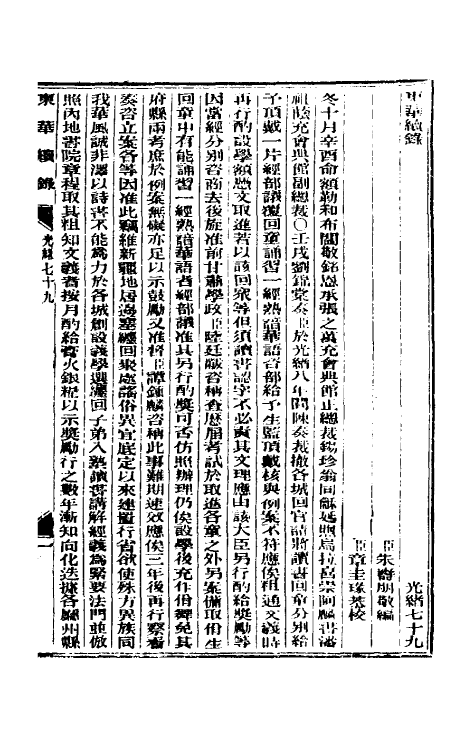 東華續錄
光緒七十九
臣朱壽朋敬編
臣章圭瑑恭校
冬十月辛酉命額勒和布閻敬銘恩承張之萬充會典館正總裁錫珍翁同龢延煦烏拉喜崇阿麟書潘
祖蔭充會典館副總裁○壬戌劉錦棠奏臣於光緒八年間陳奏裁撤各城回官請將讀書回童分別給
予頂戴一片經部議覆回童誦習一經熟諳華語者咨部給予生監頂戴核與例案不符應俟粗通文義時
再行酌設學額憑文取進若以該回眾等但須讀書認字不必責其文理應由該大臣另行酌給獎勵等
因當經分別咨商去後旋准前甘肅學政臣陸廷黻咨稱查歷屆考試於取進各童之外另案備取佾生
回童中有能誦習一經熟諳華語者經部議准其另行酌獎可否仿照辦理仍俟設學後充作佾生免其
府縣兩考庶於例案無礙亦足以示鼓勵又准督臣譚鍾麟咨稱此事難期速效應俟三年後再行察看
奏咨立案各等因准此竊維新疆地居邊塞纏回聚處謠俗異宜底定以來迭遵行省欲使殊方異族同
我華風誠非澤以詩書不能為力於各城創設義學選纏回子弟入塾讀書講解經義為緊要法門並倣
照內地書院章程取其粗知文義者按月酌給膏火銀糧以示獎勵行之數年漸知向化迭據各廳州縣
東華續錄
光緒七十九
一